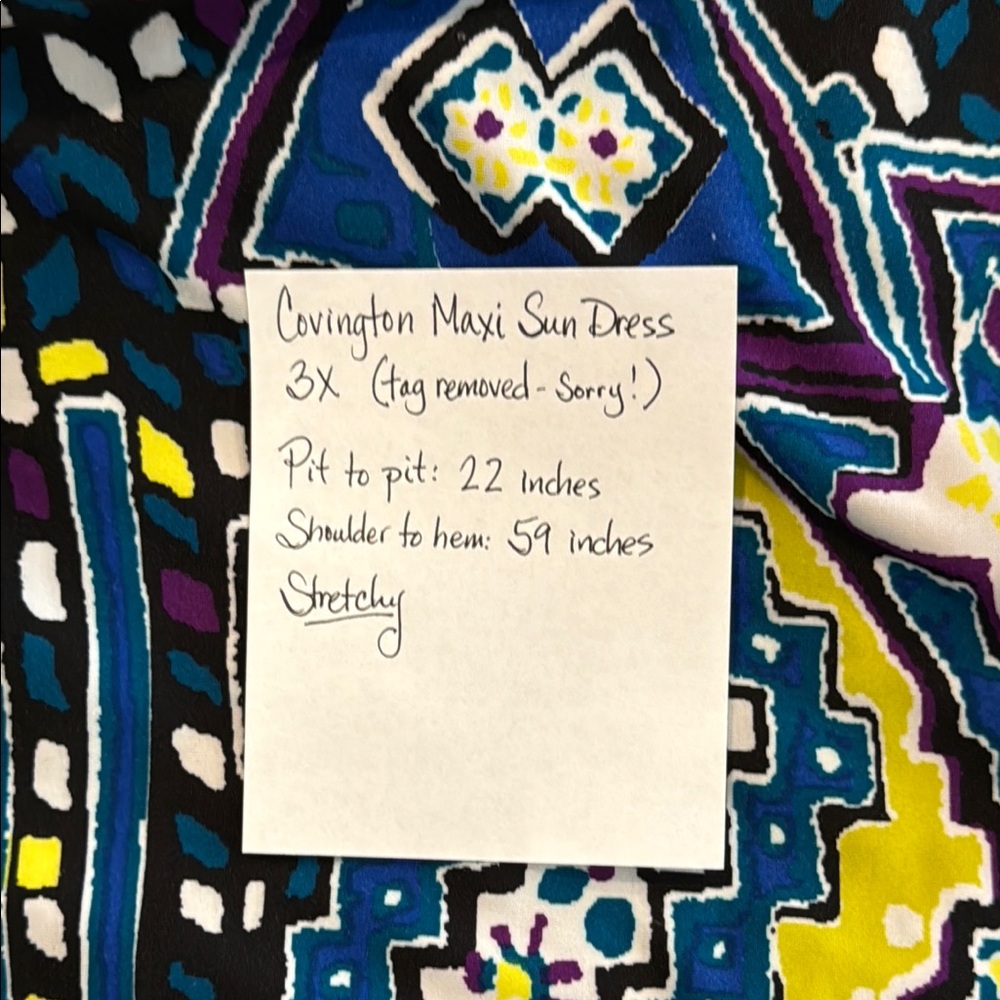 Covington Maxi Sun Dress
3X (tag removed - Sorry!)
Pit to pit: 22 inches
Shoulder to hem: 59 inches
Stretchy